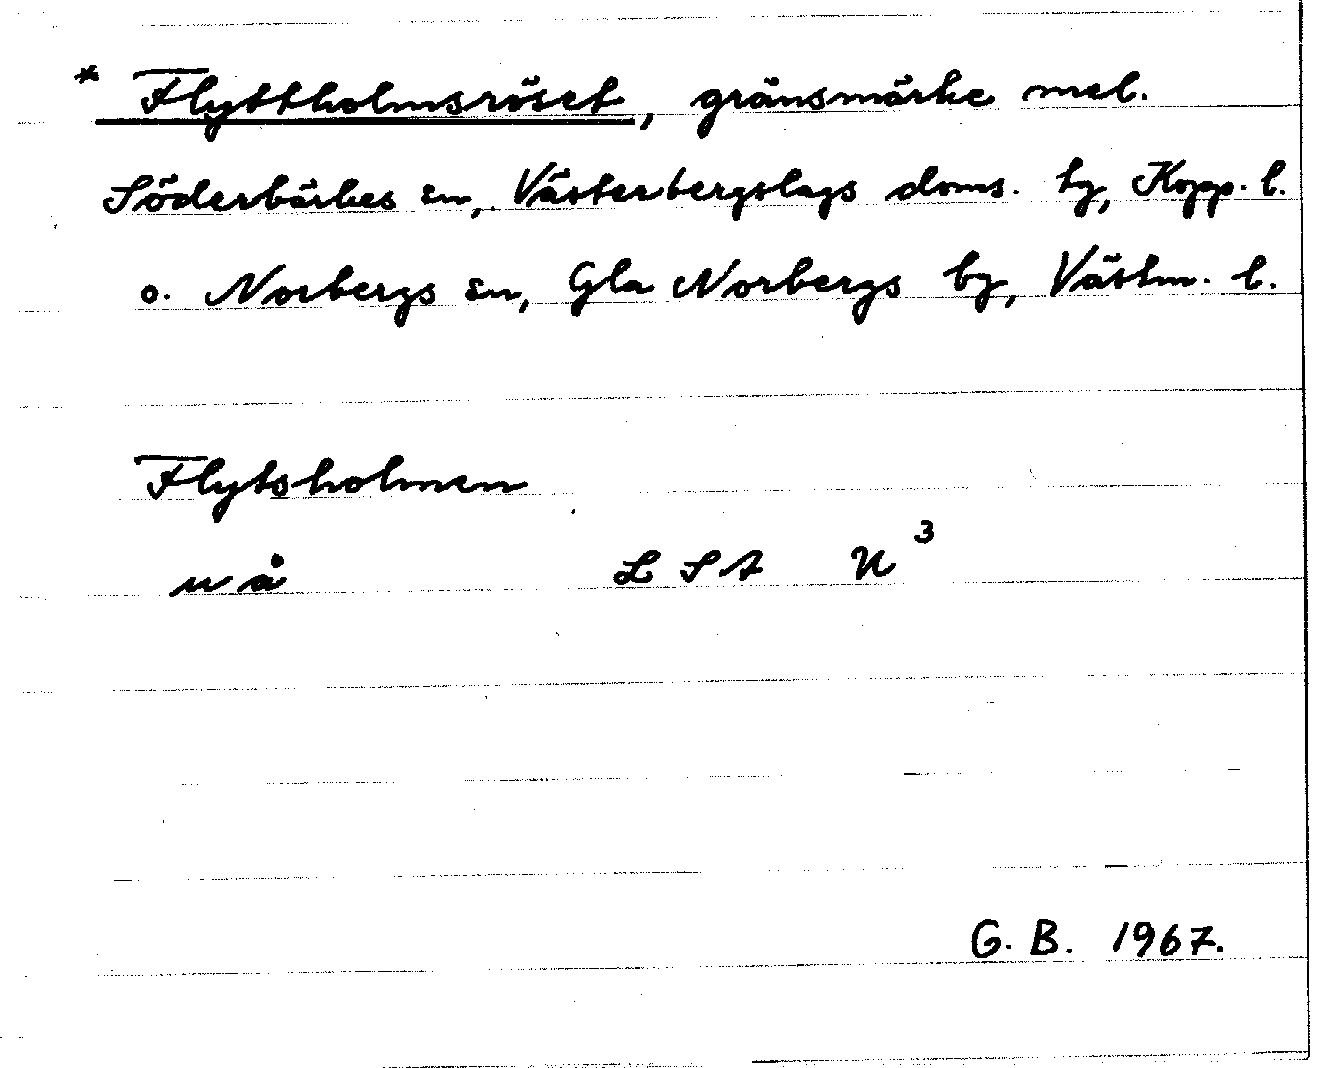 * Flyttholmsröset, gränsmärke mel.
Söderbärkes sn, Västerbergslags doms. hg, Kopp. l.
o. Norbergs sn, Gla Norbergs bg, Västm. l.
Flytsholmen
u å LSA U 3
G. B. 1967.